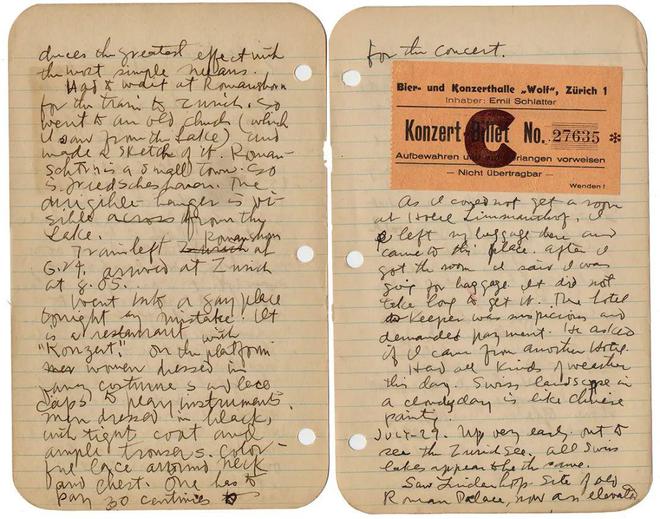 duces the greatest effect with
the most simple means.
Had to wait at Romanshorn
for the train to Zurich. So
went to an old church (which
I saw from the lake) and
made a sketch of it. Roman-
shorn is a small town. So
is Friedrichshaven. The
dirigible hanger is vi-
sible across from the
lake.
Train left Zurich Romanshorn at
6.24, arrived at Zurich
at 8.05.
Went into a gay place
tonight by mistake. It
is a restaurant with
"Konzert." On the platform
women dressed in
fancy costumes and lace
caps to play instruments.
Men dressed in black,
with tight coat and
ample trousers. Color-
ful lace around neck
and chest. One has to
pay 30 centimes
for the concert.
Bier- und Konzerthalle „Wolf", Zürich 1
Inhaber: Emil Schlatter
Konzert-Billet No. 27635 *
C
Aufbewahren und verlangen vorweisen
— Nicht übertragbar —
Wenden!
As I could not get a room
at Hotel Limmathof, I
left my luggage there and
came to this place. After I
got the room I said I was
going for baggage. It did not
take long to get it. The hotel
keeper was suspicious and
demanded payment. He asked
if I came from another Hotel.
Had all kinds of weather
this day. Swiss landscape in
a cloudy day is like Chinese
painting.
JULY-29. Up very early out to
see the Zurich See. All Swiss
lakes appear to be the same.
Saw Lindenhof. Site of old
Roman Palace, now an elevated